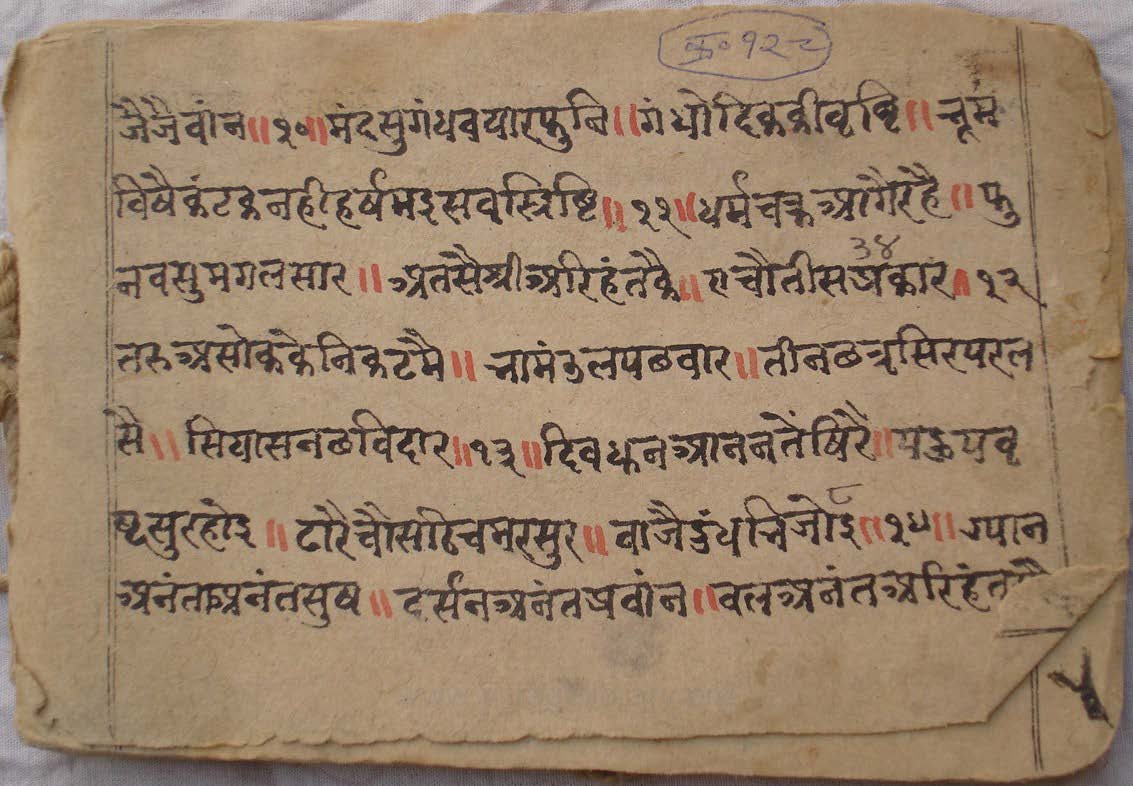 क्र० १२८
जैजैवांन॥१०॥मंदसुगंधवयारफुनि॥गंधोदिककीवृष्टि॥भूम
विषैकंटकनहीहर्षमइसवस्रिष्टि॥११॥धर्मचक्रआगैरहै॥फु
३४
नवसुमगलसार॥अतसैश्रीअरिहंतकै॥एचौतीसप्रकार॥१२
तरुअसोककेनिकटमै॥भामंडलपछवार॥तीनछत्रसिरपरल
सै॥सिंघासनछविदार॥१३॥दिवधुनआननतैंषिरै॥पहुपवृ
ष्टसुरहोइ॥ढारैचौसठिचमरसुर॥वाजैदुंधभिजोइ॥१४॥ग्यान
अनंतअनंतसुष॥दर्सनअनंतप्रवांन॥वलअनंतअरिहंत